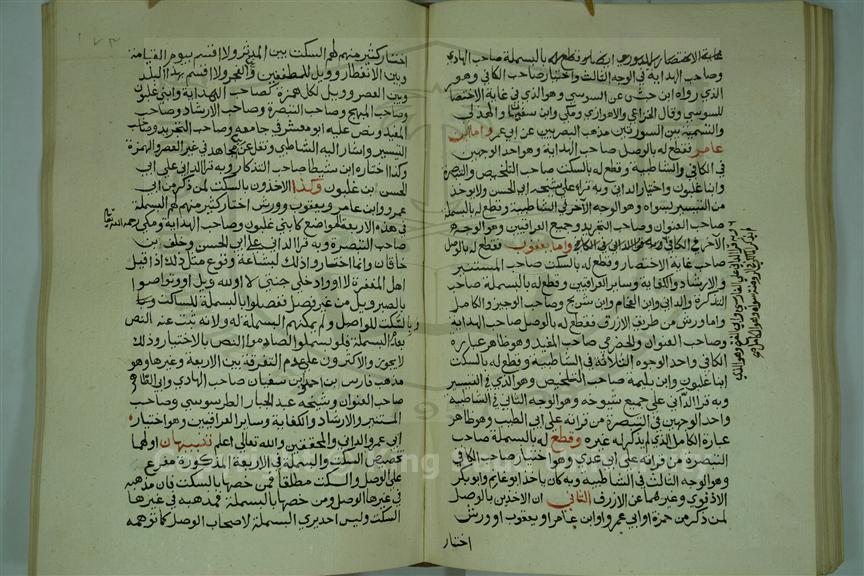 وصاحب الهداية في الوجه الثالث واختيار صاحب الكافي وهو
الذي رواه ابن حبش عن السوسي وهو الذي في غاية الاختصار
للسوسي وقال الخزاعي والاهوازي ومكي وابن سفيان والهذلي
والتسمية بين السورتين مذهب البصريين عن ابي عمرو واما ابن
عامر فقطع له بالوصل صاحب الهداية وهو احد الوجهين
في الكافي والشاطبية وقطع له بالسكت صاحب التلخيص والتبصرة
وابنا غلبون واختيار الداني وبه قرا على شيخه ابي الحسن ولا يوخذ
من التيسير بسواه وهو الوجه الاخر في الشاطبية وقطع له بالبسملة
صاحب العنوان وصاحب التجريد وجميع العراقيين وهو الوجه
الاخر في الكافي وبه قرا الداني على الفارسي واما يعقوب فقطع له بالوصل
صاحب غاية الاختصار وقطع له بالسكت صاحب المستنير
والارشاد والكفاية وساير العراقيين وقطع له بالبسملة صاحب
التذكرة والداني وابن الفحام وابن شريح وصاحب الوجيز والكامل
واما ورش من طريق الازرق فقطع له بالوصل صاحب الهداية
وصاحب العنوان والحضرمي صاحب المفيد وهو ظاهر عبارة
الكافي واحد الوجوه الثلاثة في الشاطبية وقطع له بالسكت
ابنا غلبون وابن بليمة صاحب التلخيص وهو الذي في التيسير
وبه قرا الداني على جميع شيوخه وهو الوجه الثاني في الشاطبية
واحد الوجهين في التبصرة من قراته على ابي الطيب وهو ظاهر
عبارة الكامل الذي لم يذكر له غيره وقطع له بالبسملة صاحب
التبصرة من قراته على ابي عدي وهو اختيار صاحب الكافي
وهو الوجه الثالث في الشاطبية وبه كان ياخذ ابو غانم وابو بكر
الاذفوي وغيرهما عن الازرق الثاني ان الاخذين بالوصل
لمن ذكر من حمزة او ابي عمرو او ابن عامر او يعقوب او ورش
اختار
اختار كثير منهم لهم السكت بين المدثر ولا اقسم بيوم القيامة
وبين الانفطار وويل للمطففين والفجر ولا اقسم بهذا البلد
وبين العصر وويل لكل همزة كصاحب الهداية وابني غلبون
وصاحب المبهج وصاحب التبصرة وصاحب الارشاد وصاحب
المفيد ونص عليه ابو معشر في جامعه وصاحب التجريد وصاحب
التيسير واشار اليه الشاطبي ونقل عن مجاهد في غير العصر والهمزة
وكذا اختاره ابن شيطا صاحب التذكار وبه قرا الداني على ابي
الحسن ابن غلبون وكذا الاخذون بالسكت لمن ذكر من ابي
عمرو وابن عامر ويعقوب وورش اختار كثير منهم لهم البسملة
في هذه الاربعة المواضع كابني غلبون وصاحب الهداية ومكي
صاحب التبصرة وبه قرا الداني على ابي الحسن وخلف بن
خاقان وانما اختاروا ذلك لبشاعة وقوع مثل ذلك اذا قيل
اهل المغفرة لا او وادخلي جنتي لا او لله ويل او وتواصوا
بالصبر ويل من غير فصل ففصلوا بالبسملة للساكت
وبالسكت للواصل ولم يمكنهم البسملة له ولانه ثبت عنه النص
بعدم البسملة فلو بسملوا لصادموا النص بالاختيار وذلك
لا يجوز والاكثرون على عدم التفرقة بين الاربعة وغيرها وهو
مذهب فارس بن احمد وابن سفيان صاحب الهادي وابي الطاهر
صاحب العنوان وشيخه عبد الجبار الطرسوسي وصاحب
المستنير والارشاد والكفاية وساير العراقيين وهو اختيار
ابي عمرو الداني والمحققين والله تعالى اعلم تنبيهان اولهما
تخصيص السكت والبسملة في الاربعة المذكورة مفرع
على الوصل والسكت مطلقا فمن خصها بالسكت فان مذهبه
في غيرها الوصل ومن خصها بالبسملة فمذهبه في غيرها
السكت وليس احد يرى البسملة لاصحاب الوصل كما توهمه